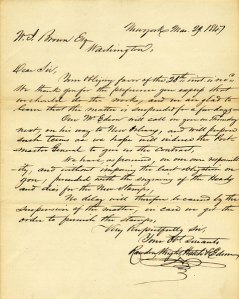 Newyork Mar 29 1847
W. J. Brown Esq
Washington
Dear Sir,
Your Obliging favor of the 28th inst is rec
We thank you for the preference you express that
we should do the works, and are glad to
learn that the matter is suspended for a few days
Our Mr Edson will call on you on Thursday
next, on his way to New Orleans, and will propose
such terms as we hope will induce the Post
master General to give us the Contract,
We have as proposed, on our own responsibi
lity, and without imposing the least obligation on
you, proceeded with the engraving of the Heads
and dies for the New Stamps,
No delay will therefore be caused by the
suspension of the matter, in case we get the
order to furnish the stamps,
Very Respectfully Sir,
Your Obt Servants
Rawdon, Wright, Hatch & Edson